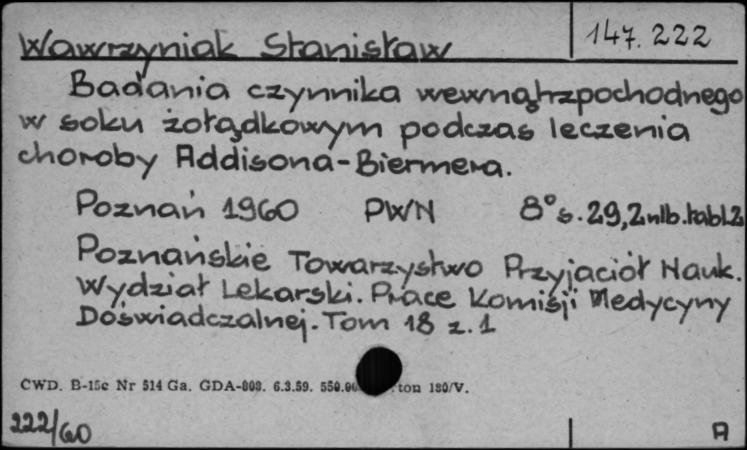 147.222
Wawrzyniak Stanisław
Badania czynnika wewnątrzpochodnego
w soku żołądkowym podczas leczenia
choroby Addisona-Biermera.
Poznań 1960 PWN 8° s. 29, 2 nlb. tabl. 2
Poznańskie Towarzystwo Przyjaciół Nauk.
Wydział Lekarski. Prace Komisji Medycyny
Doświadczalnej. Tom 18 z. 1
CWD. B-15c Nr 514 Ga. GDA-808. 6.3.59. ton 180/V.
222/60 A